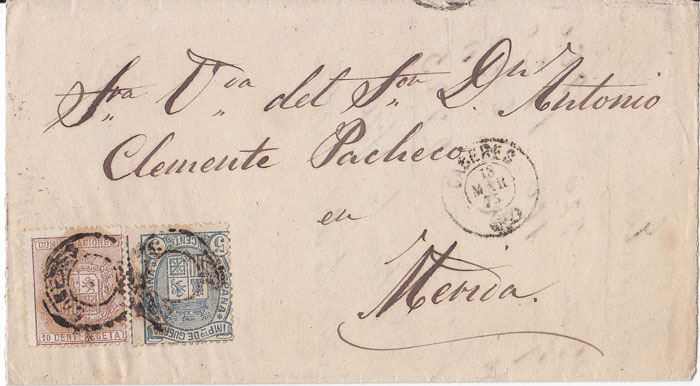 Sra Vda del Sor Dn Antonio
Clemente Pacheco
en
Merida.
CACERES
18
MAR
75
COMUNICACIONES
10 CENT PESETA
CACERES
5 CENT
IMPTO DE GUERRA